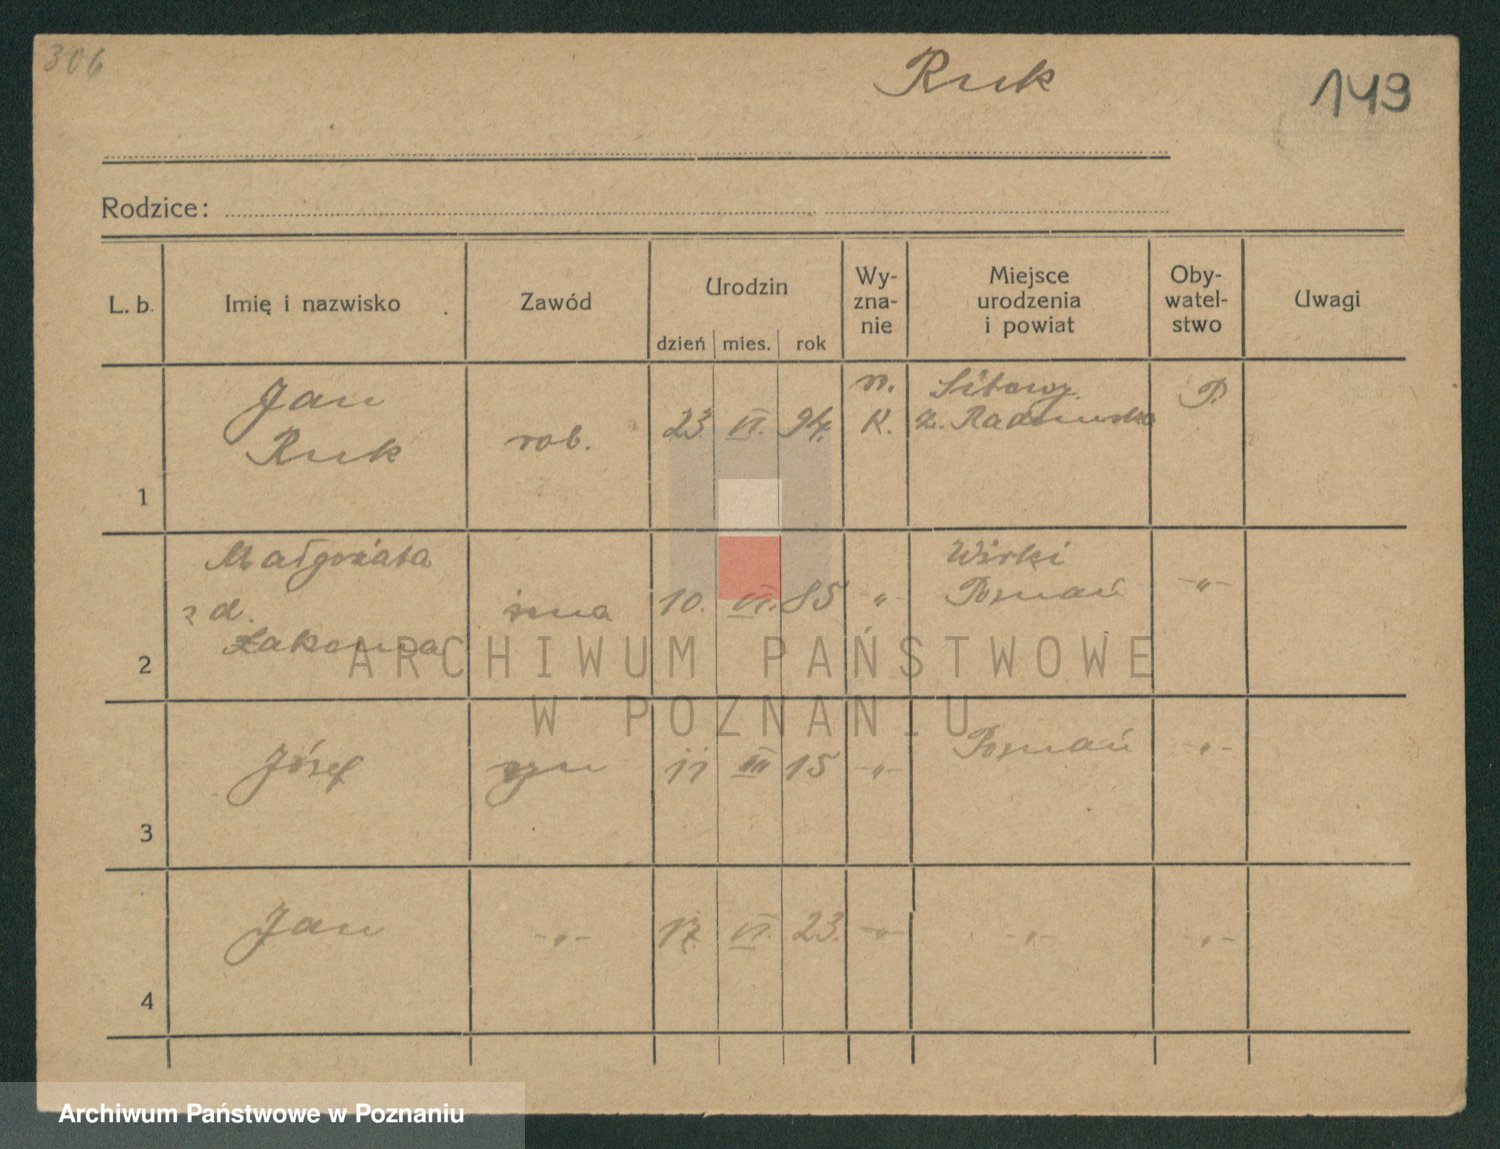 306
Ruk
149
Rodzice:
L. b.
Imię i nazwisko
Zawód
Urodzin
dzień mies. rok
Wy-
zna-
nie
Miejsce
urodzenia
i powiat
Oby-
watel-
stwo
Uwagi
1
Jan
Ruk
rob.
23. VI. 94.
r.
K.
P.
2
Małgorzata
z d.
żona
10. VI. 85
-„-
Wirki
Poznań
-„-
3
Józef
syn
11 III 15
-„-
Poznań
-„-
4
Jan
-„-
17. VI. 23.
-„-
-„-
-„-
ARCHIWUM PAŃSTWOWE
W POZNANIU
Archiwum Państwowe w Poznaniu